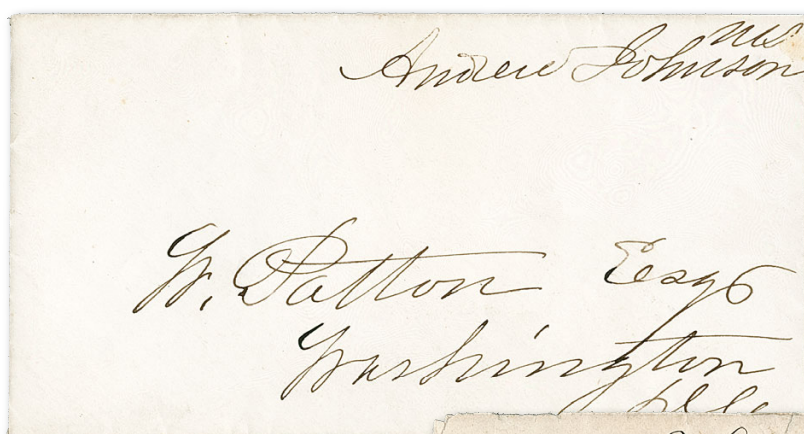 Andrew Johnson
W. Patton Esqr
Washington